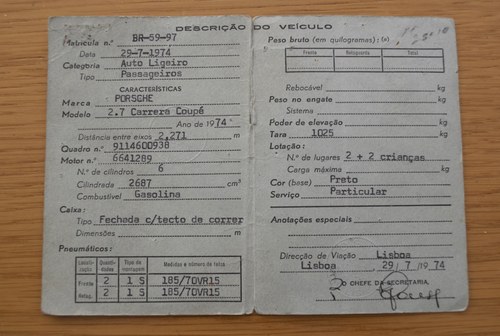 DESCRIÇÃO DO VEÍCULO
Matrícula n.º BR-59-97
Data 29-7-1974
Categoria Auto Ligeiro
Tipo Passageiros
CARACTERÍSTICAS
Marca PORSCHE
Modelo 2.7 Carrera Coupé
Ano de 1974
Distância entre eixos 2,271 m
Quadro n.º 9114600938
Motor n.º 6641289
N.º de cilindros 6
Cilindrada 2687 cm³
Combustível Gasolina
Caixa:
Tipo Fechada c/tecto de correr
Dimensões m
Pneumáticos:
Locali-zação Quanti-dades Tipo de montagem Medidas e número de telas
Frente 2 1 S 185/70VR15
Retag. 2 1 S 185/70VR15
Peso bruto (em quilogramas): (a)
Frente Retaguarda Total
Rebocável kg
Peso no engate kg
Sistema
Poder de elevação kg
Tara 1025 kg
Lotação:
N.º de lugares 2 + 2 crianças
Carga máxima kg
Cor (base) Preto
Serviço Particular
Anotações especiais
Direcção de Viação Lisboa
Lisboa, 29 / 7 /1974
O CHEFE DA SECRETARIA,